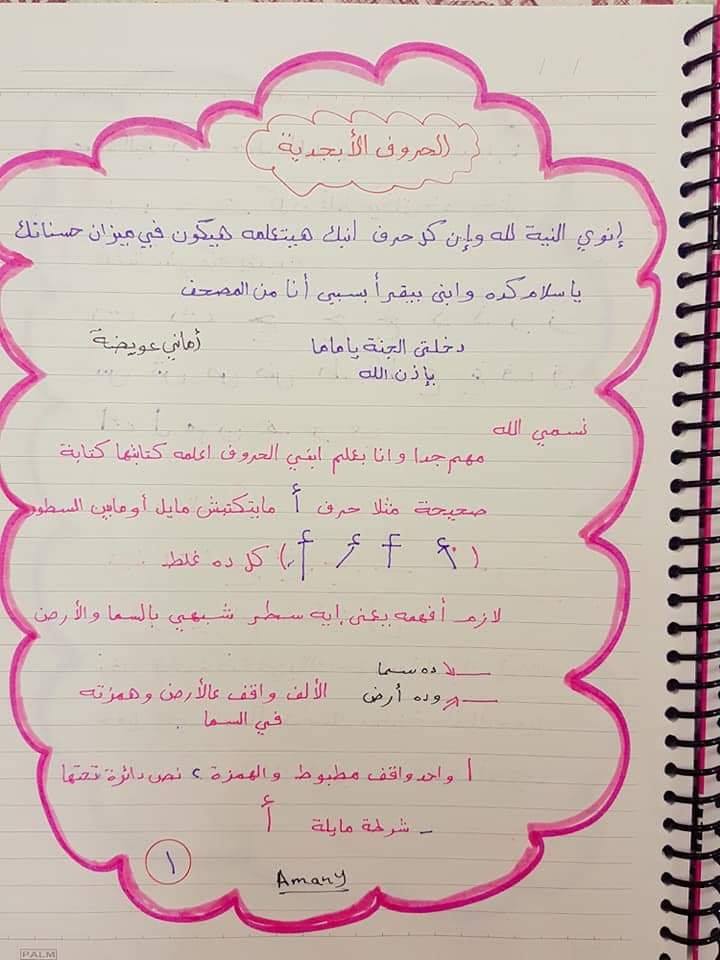 الحروف الأبجدية
إنوي النية لله وإن كل حرف أبنك هيتعلمه هيكون في ميزان حسناتك
يا سلام كده وابنى بيقرأ بسببي أنا من المصحف
دخلتى الجنة ياماما أماني عويضة
بإذن الله
نسمي الله
مهم جدا وانا بعلم ابني الحروف اعلمه كتابتها كتابة
صحيحة مثلا حرف أ مابتكتبش مايل أو مابين السطور
( أ أ أ أ ) كل ده غلط
لازم أفهمه يعنى إيه سطر شبهي بالسما والأرض
ده سما
وده أرض الألف واقف عالأرض وهمزته
في السما
ا واحد واقف مظبوط والهمزة ء نص دائرة تحتها
- شرطة مايلة أ
١
Amany
PALM